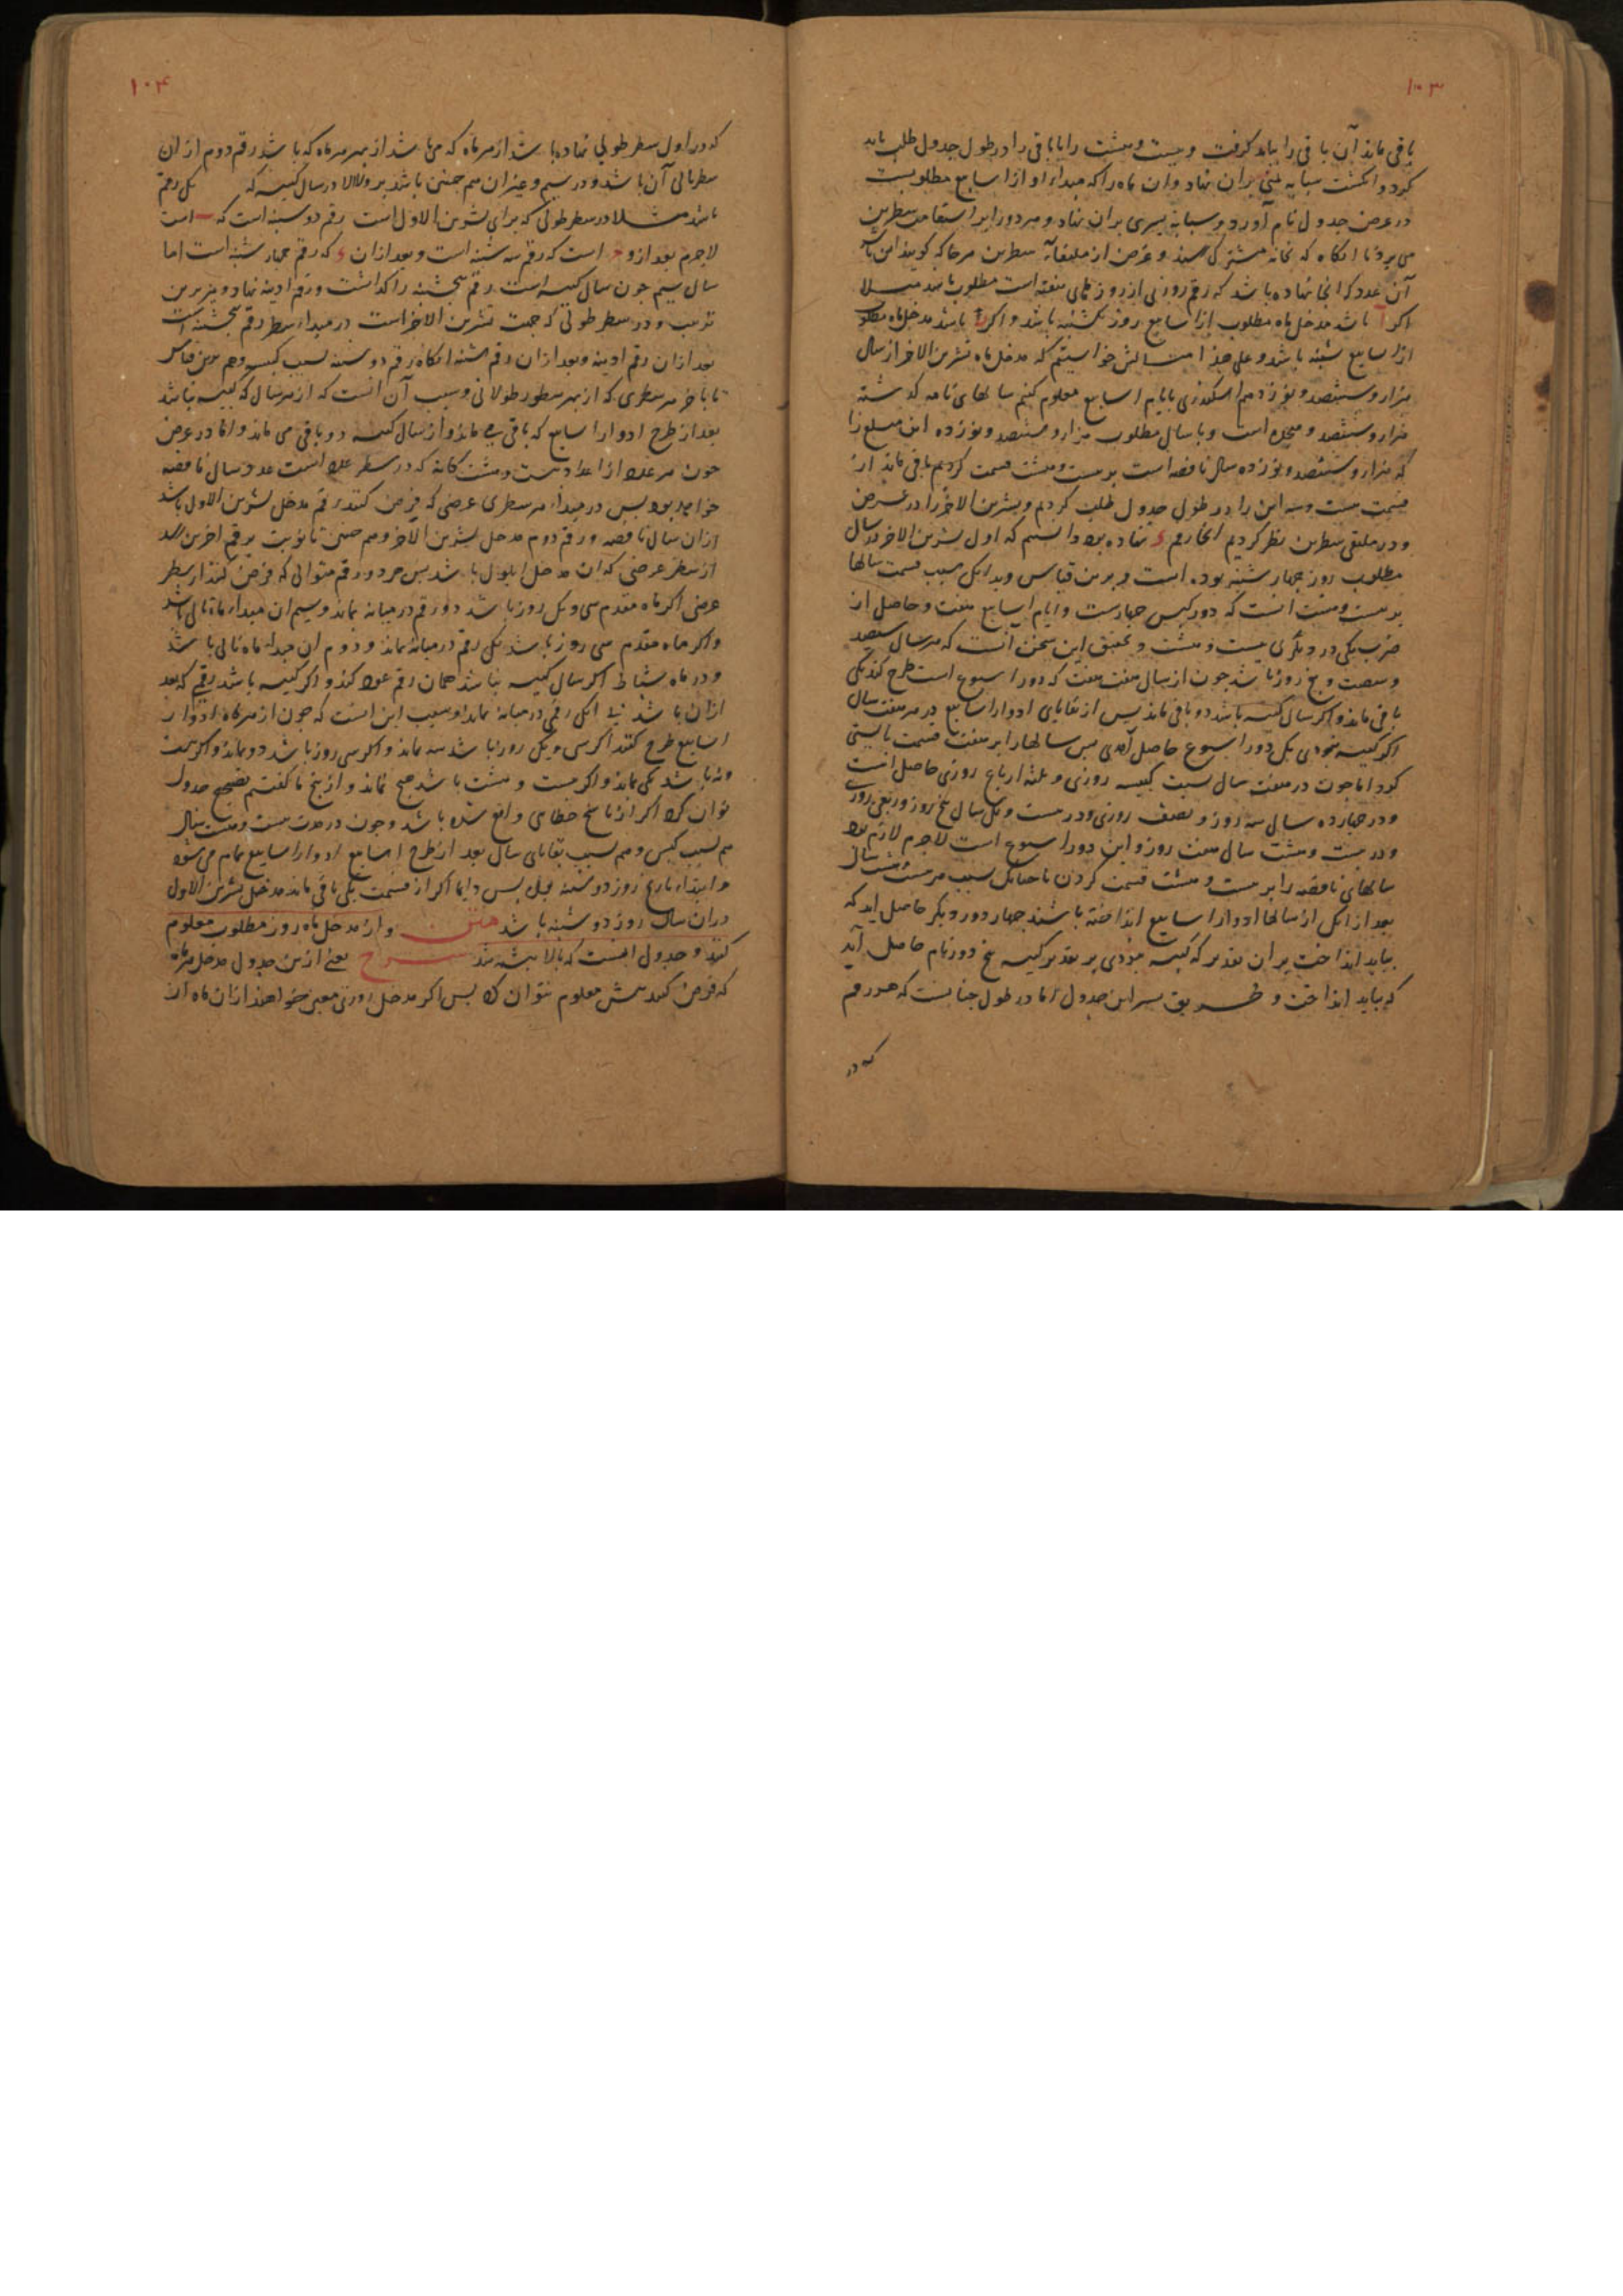 ۱۰۳
باقی ماند آن باقی را بباید گرفت و بیست و هشت را یا باقی را در طول جدول طلب باید
کرد و انکشت سبابه یمنی بران نهاد و ان ماه را که مبداء او از اسابیع مطلوبست
در عرض جدول نام آورد و سبابه یسری بران نهاد و هر دو را بر استقامت سطرین
می برد تا انکاه که بخانه مشترک رسند و غرض از ملتقاء سطرین هرجا که کویند این باشد
آن عدد که انجا نهاده باشد که رقم روزی از روزهای هفته است مطلوب باشد مثلا
اکر آ باشد مدخل ماه مطلوب از اسابیع روز یکشنبه باشد و اکر باشد مدخل ماه مطلوب
از اسابیع شنبه باشد و علی هذا مثالش خواستیم که مدخل ماه تشرین الاخر از سال
هزار و ششصد و نوزدهم اسکندری با ایام اسابیع معلوم کنیم سالهای تامه کذشته
هزار و ششصد و هجده است و با سال مطلوب هزار و ششصد و نوزده این مبلغ را
که هزار و ششصد و نوزده سال ناقصه است بر بیست و هشت قسمت کردیم باقی ماند از
قسمت بیست و سه این را در طول جدول طلب کردیم و تشرین الاخر را در عرض
و در ملتقی سطرین نظر کردیم انجا رقم د نهاده بود دانستیم که اول تشرین الاخر در سال
مطلوب روز چهار شنبه بوده است و برین قیاس وبدانکه سبب قسمت سالها
بر بیست و هشت انست که دور کبس چهارست و ایام اسابیع هفت و حاصل از
ضرب یکی در دیکری بیست و هشت و تحقیق این سخن انست که هر سال سیصد
و شصت و پنج روز باشد چون از سال هفت هفت که دور اسبوع است طرح کنند یکی
باقی ماند و اکر سال کبیسه باشد دو باقی ماند پس از بقایای ادوار اسابیع در هر هفت سال
اکر کبیسه نبودی یک دور اسبوع حاصل آمدی پس سالها را بر هفت قسمت بایستی
کرد اما چون در هفت سال سبب کبیسه روزی و ثلثه ارباع روزی حاصل انست
و در چهارده سال سه روز و نصف روزی و در بیست و یک سال پنج روز و ربعی روز
و در بیست و هشت سال هفت روز و این دور اسبوع است لاجرم لازم بود
سالهای ناقصه را بر بیست و هشت قسمت کردن تا چنانک سبب هر بیست و هشت سال
بعد از انکی از سالها ادوار اسابیع انداخته باشند چهار دور دیکر حاصل اید که
بباید انداخت بران تقدیر که کبیسه نبودی بر تقدیر کبیسه پنج دور تام حاصل آید
که بباید انداخت و طریق بسر این جدول اما در طول چنانست که هر رقم
که در
۱۰۴
که در اول سطر طولی نهاده باشد از هر ماه که می باشد از بهر هر ماه که باشد رقم دوم از ان
سطر تالی آن باشد و در سیم و غیر ان هم چنین باشد بر ولا الا در سال کبیسه که یک رقم
باشد مثلا در سطر طولی که برای تشرین الاول است رقم دوشنبه است که ب است
لاجرم بعد از و ج است که رقم سه شنبه است و بعد ازان د که رقم چهار شنبه است اما
سال سیم چون سال کبیسه است رقم پنجشنبه را کذاشت و رقم ادینه نهاد و نیز برین
ترتیب و در سطر طولی که جهت تشرین الاخر است در مبداء سطر رقم پنجشنبه است
بعد ازان رقم ادینه و بعد ازان رقم شنبه انکاه رقم دوشنبه سبب کبیسه و هم برین قیاس
تا باخر هر سطری که از بهر سطور طولانی و سبب آن انست که از هر سال که کبیسه نباشد
بعد از طرح ادوار اسابیع که باقی یکی ماند و از سال کبیسه دو باقی می ماند و اما در عرض
چون هر عدد از اعداد بیست و هشت کانه که در سطر عدد است عدد سال ناقصه
خواهد بود پس در مبداء هر سطری عرضی که فرض کنند رقم مدخل تشرین الاول باشد
ازان سال ناقصه و رقم دوم مدخل تشرین الاخر و هم چنین تا نوبت برقم اخرین رسد
از سطر عرضی که ان مدخل ایلول باشد پس هر دو رقم متوالی که فرض کنند از سطر
عرضی اکر ماه مقدم سی و یک روز باشد دو رقم در میانه بماند و سیم ان مبداء ماه تالی باشد
و اکر ماه مقدم سی روز باشد یک رقم در میانه بماند و دوم ان مبداء ماه تالی باشد
و در ماه شباط اکر سال کبیسه نباشد همان رقم عود کند و اکر کبیسه باشد رقمی که بعد
ازان باشد بی انکی رقمی در میانه بماند و سبب این انست که چون از هر ماه ادوار
اسابیع طرح کنند اکر سی و یک روز باشد سه ماند و اکر سی روز باشد دو ماند و اکر بیست
و نه باشد یکی ماند و اکر بیست و هشت باشد هیچ نماند و ازینج ما کفتیم تصحیح جدول
توان کرد اکر از ناسخ خطایی واقع شده باشد و چون در مدت بیست و هشت سال
هم بسبب کبس و هم بسبب بقایای سال بعد از طرح اسابیع ادوار اسابیع تمام می شود
و ابتداء تاریخ روز دوشنبه بود پس دایما اکر از قسمت یکی باقی ماند مدخل تشرین الاول
دران سال روز دوشنبه باشد متن و از مدخل ماه روز مطلوب معلوم
کنند و جدول اینست که بالا نبشته شد شرح یعنی ازین جدول مدخل هر ماه
که فرض کنند بیش معلوم نتوان کرد پس اکر مدخل روزی معین خواهند ازان ماه از